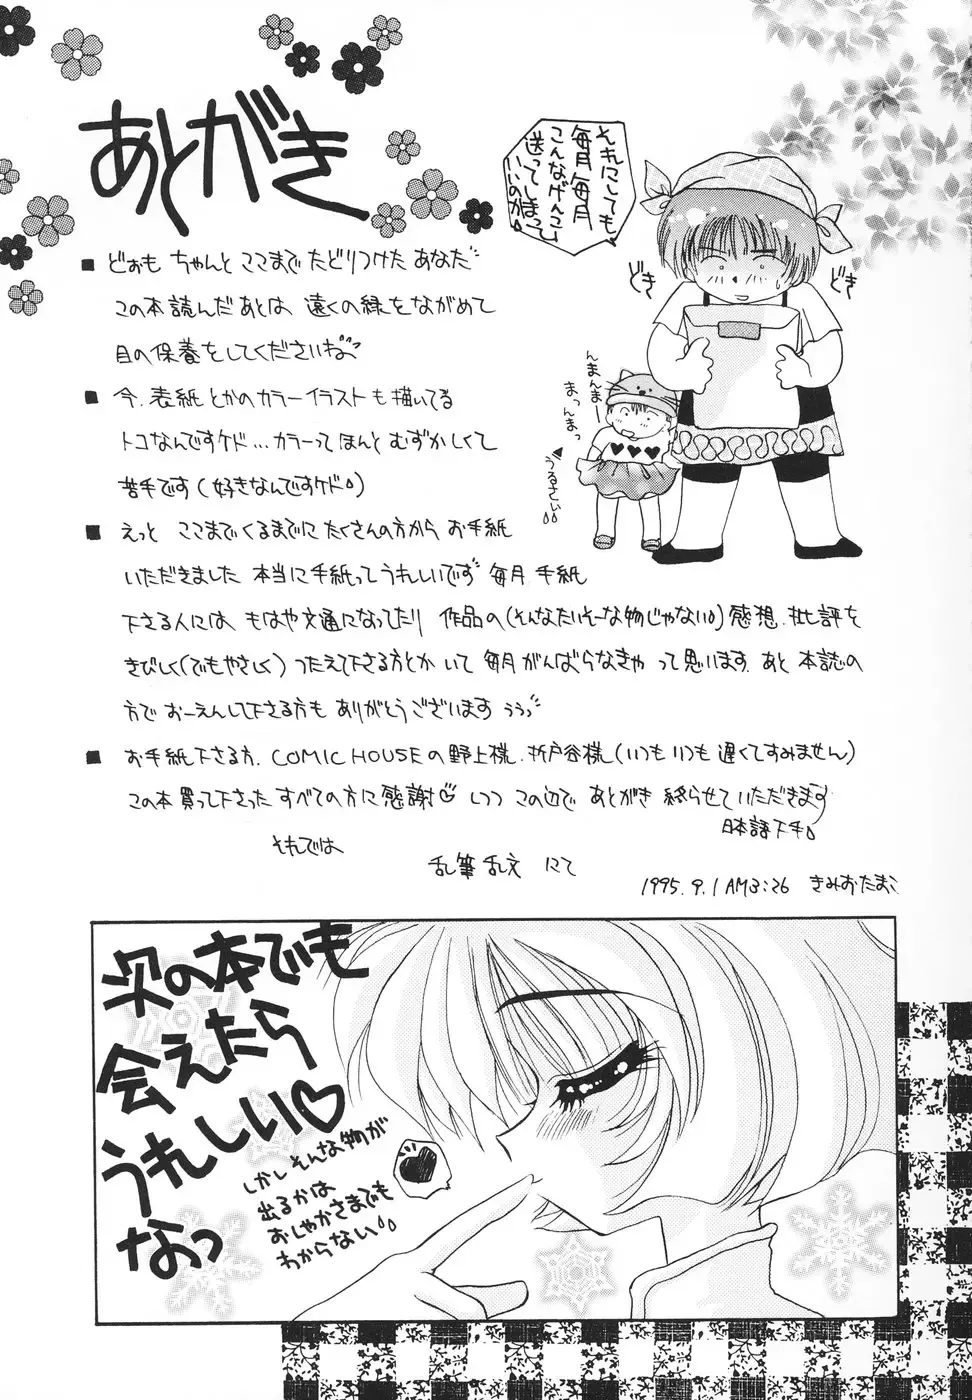 あとがき
それにしても
毎月毎月
こんなげんこ
送ってしまって
いいのか。
どき
どき
んまんまー
まっんまっ
うるさい
■どぉも ちゃんと ここまで たどりつけた あなた
この本読んだあとは 遠くの緑をながめて
目の保養をしてくださいね
■今、表紙とかのカラーイラストも描いてる
トコなんですケド…カラーって ほんと むずかしくて
苦手です(好きなんですケド)
■えっと ここまでくるまでに たくさんの方から お手紙
いただきました 本当に手紙って うれしいです 毎月 手紙
下さる人には、もはや文通になってたり 作品の(そんなたいそーな物じゃない)感想、批評を
きびしく(でもやさしく)つたえて下さる方とか いて 毎月がんばらなきゃ って思います。あと 本誌の
方で おーえんして下さる方も ありがとうございます ぅぅっ
■お手紙下さる方、COMIC HOUSEの野上様、折戸谷様(いつも いつも 遅くてすみません)
この本 買って下さった すべての方に感謝♡しつつ この辺で あとがき 終らせていただきます
日本語下手
それでは
乱筆乱文 にて
1995.9.1 AM3:26 きみおたまこ
次の本でも
会えたら
うれしい♡
なっ
しかし そんな物が
出るかは
おしゃかさまでも
わからない